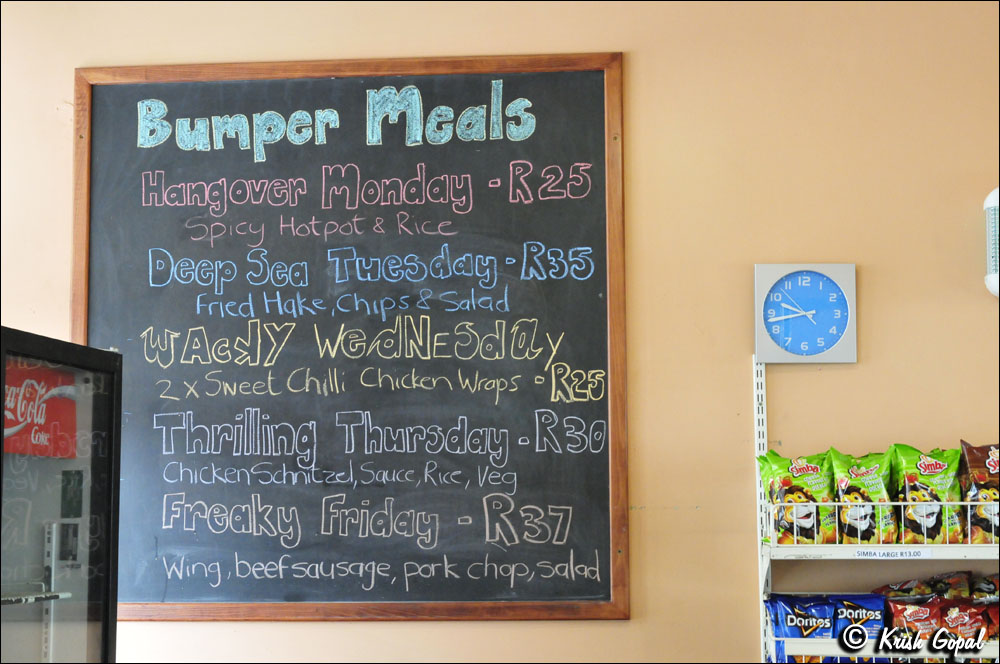 Bumper Meals
Hangover Monday - R25
Spicy Hotpot & Rice
Deep Sea Tuesday - R35
Fried Hake, Chips & Salad
Wacky Wednesday
2 x Sweet Chilli Chicken Wraps - R25
Thrilling Thursday - R30
Chicken Schnitzel, Sauce, Rice, Veg
Freaky Friday - R37
Wing, beef sausage, pork chop, salad
Coca-Cola
Coke
12 1 2 3 4 5 6 7 8 9 10 11
Simba Simba Simba Simba
SIMBA LARGE R13.00
Doritos Doritos Simba Simba
© Krish Gopal